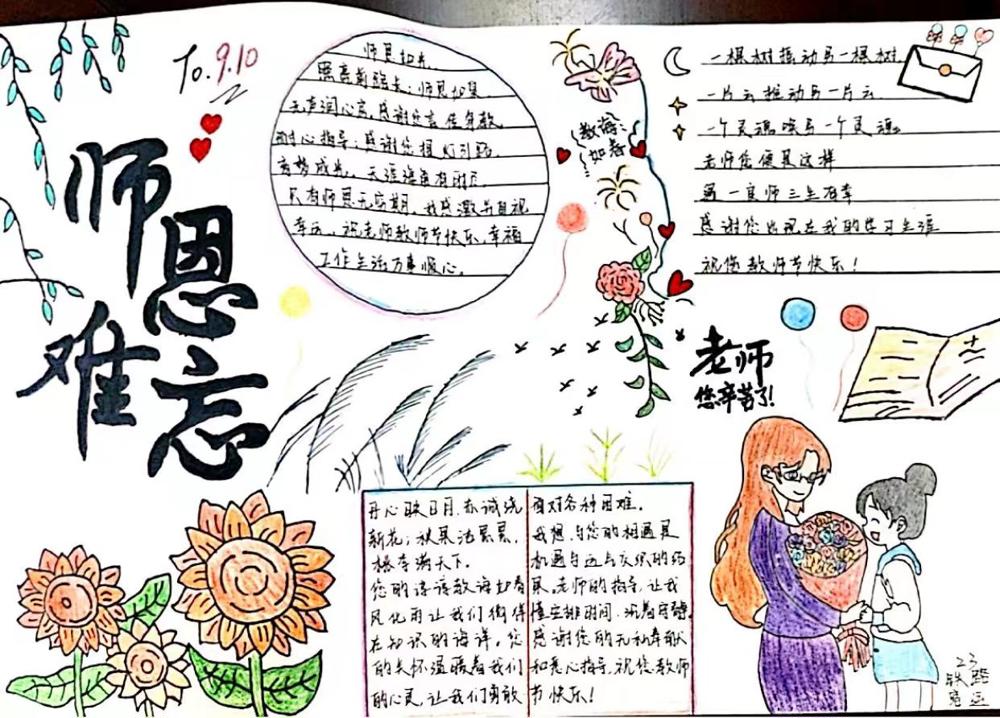 师恩难忘
To.9.10
师恩如光,
照亮前路长;师恩如泉,
无声润心房,感谢您言传身教,
耐心指导;感谢您提灯引路,
育梦成光,天涯海角有尽处,
只有师恩无穷期,我感激并自视
幸运,祝老师教师节快乐,幸福
工作生活万事顺心。
教诲:
如春
一棵树摇动另一棵树
一片云推动另一片云
一个灵魂唤另一个灵魂
老师您便是这样
遇一良师三生有幸
感谢您出现在我的学习生涯
祝您教师节快乐!
老师
您辛苦了!
丹心映日月,赤诚浇
新花;秋果法累累,
桃李满天下。
您的谆谆教诲如春
风化雨让我们徜徉
在知识的海洋,您
的关怀温暖着我们
的心灵,让我们勇敢
面对各种困难。
我想,与您的相遇是
机遇与远去灰烬的结
果,老师的指导,让我
懂安排时间,沉着冷静。
感谢您的无私奉献
和悉心指导,祝您教师
节快乐!
23
铁路